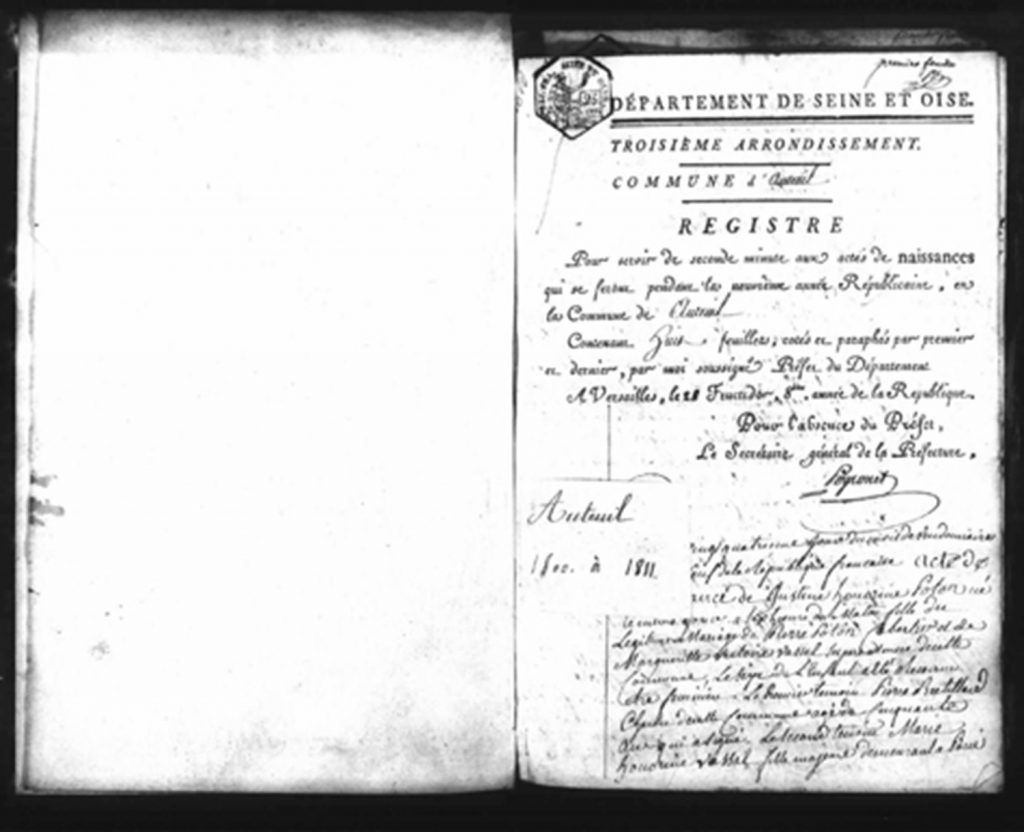 premier feuillet
DÉPARTEMENT DE SEINE ET OISE.
TROISIÈME ARRONDISSEMENT.
COMMUNE d'Auteuil
REGISTRE
Pour servir de seconde minute aux actes de naissances
qui se feront pendant la neuvième année Républicaine, en
la Commune de Auteuil
Contenant huit feuillets, cotés et paraphés par premier
et dernier, par moi soussigné Préfet du Département
A Versailles, le 28 Fructidor, 8ème. année de la République.
Pour l'absence du Préfet,
Le Secrétaire général de la Préfecture.
Peyronet
Auteuil
1800. à 1811.
quatrieme jour du mois de vendemiaire
de la République francaise acte de
de Justine honorine né
le meme jour a heure du matin fille de
Legitime Mariage de Pierre et de
Marguerite victoire vassel demeurant decette
Commune, Le sexe de L'enfant a été reconnu
etre feminin. Le premier temoin Pierre
decette Commune agé de Cinquante
ans qui a signé. Le second temoin Marie
honorine vassel fille majeure demeurant a Paris